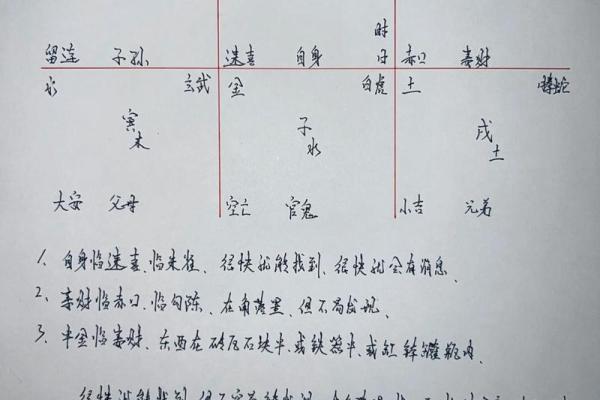 时
留连 子孙 速喜 自身 日 赤口 妻财
水 玄武 金 白虎 土 螣蛇
寅 子 戌
木 水 土
大安 父母 空亡 官鬼 小吉 兄弟
1、自身临速喜、临朱雀、很快就能找到、很快就会有消息、
2、妻财临赤口、临勾陈、在角落里、但不易发现、
3、半金临妻财、东西在砖瓦石块中、或铁器中、或缸钵罐瓶内、
很快就能找到